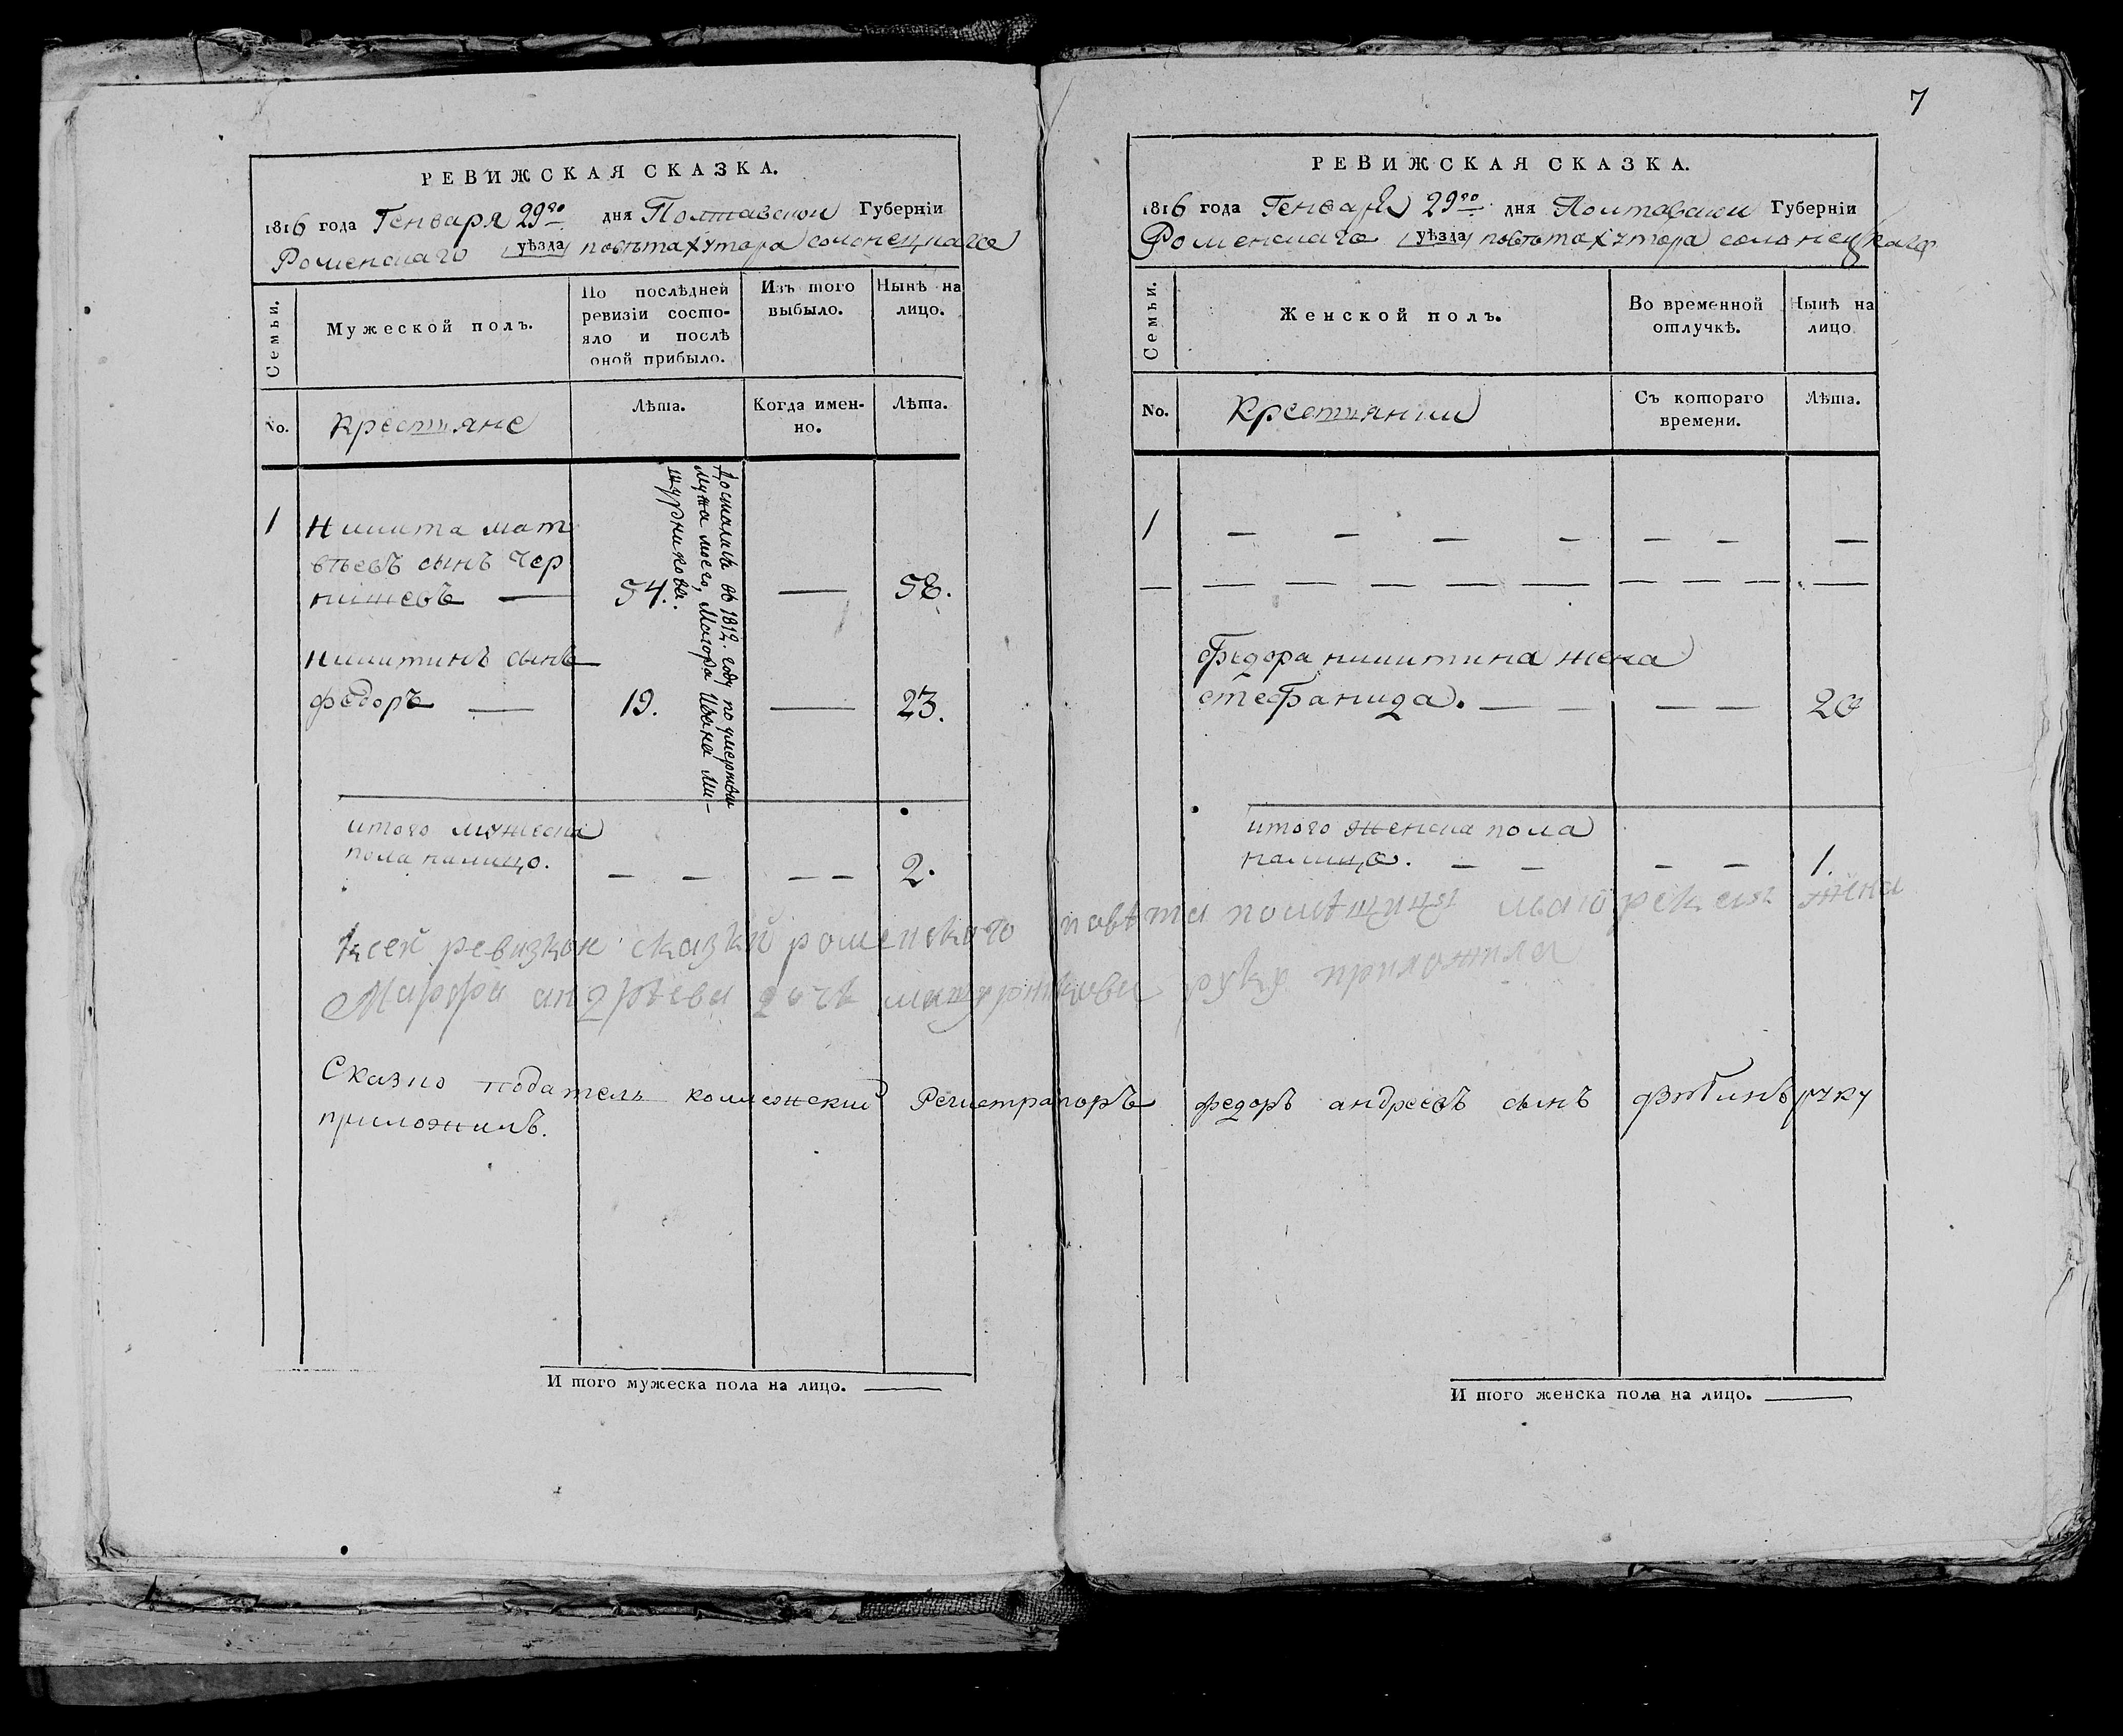 7
РЕВИЖСКАЯ СКАЗКА.
1816 года Генваря 29го дня Полтавской Губерніи
Роменскаго (уѣзда) повѣта хутора солонецкаго
Семьи.
Мужеской полъ.
По послѣдней
ревизіи состо-
яло и послѣ
оной прибыло.
Изъ того
выбыло.
Нынѣ на
лицо.
No.
Крестияне
Лѣта.
Когда имен-
но.
Лѣта.
1 Никита мат
вѣевъ сынъ Чер
нишевъ — 54. — 58.
Достались въ 1812. году по умертвіи
мужа моего, Маіора Ивана Ми-
шурникова.
никитинъ сынъ
федоръ — 19. — 23.
итого мужеска
пола налицо. — — — — 2.
РЕВИЖСКАЯ СКАЗКА.
1816 года Генваря 29го дня Полтавской Губерніи
Роменскаго (уѣзда) повѣта хутора солонецкаго
Семьи.
Женской полъ.
Во временной
отлучкѣ.
Нынѣ на
лицо
No.
Крестиянки
Съ котораго
времени.
Лѣта.
1 — — — — — — —
— — — — — — — — — — —
Федора никитина жена
стефанида. — — — — 20
итого женска пола
налицо. — — — — 1.
К сей ревизкой сказки роменского повѣта помѣщица маиорская жена
Марфа андрѣева дочь мишурникова руку приложила
Сказко податель колежский Регистраторъ федоръ андреевъ сынъ руку
приложилъ.
И того мужеска пола на лицо. —
И того женска пола на лицо. —